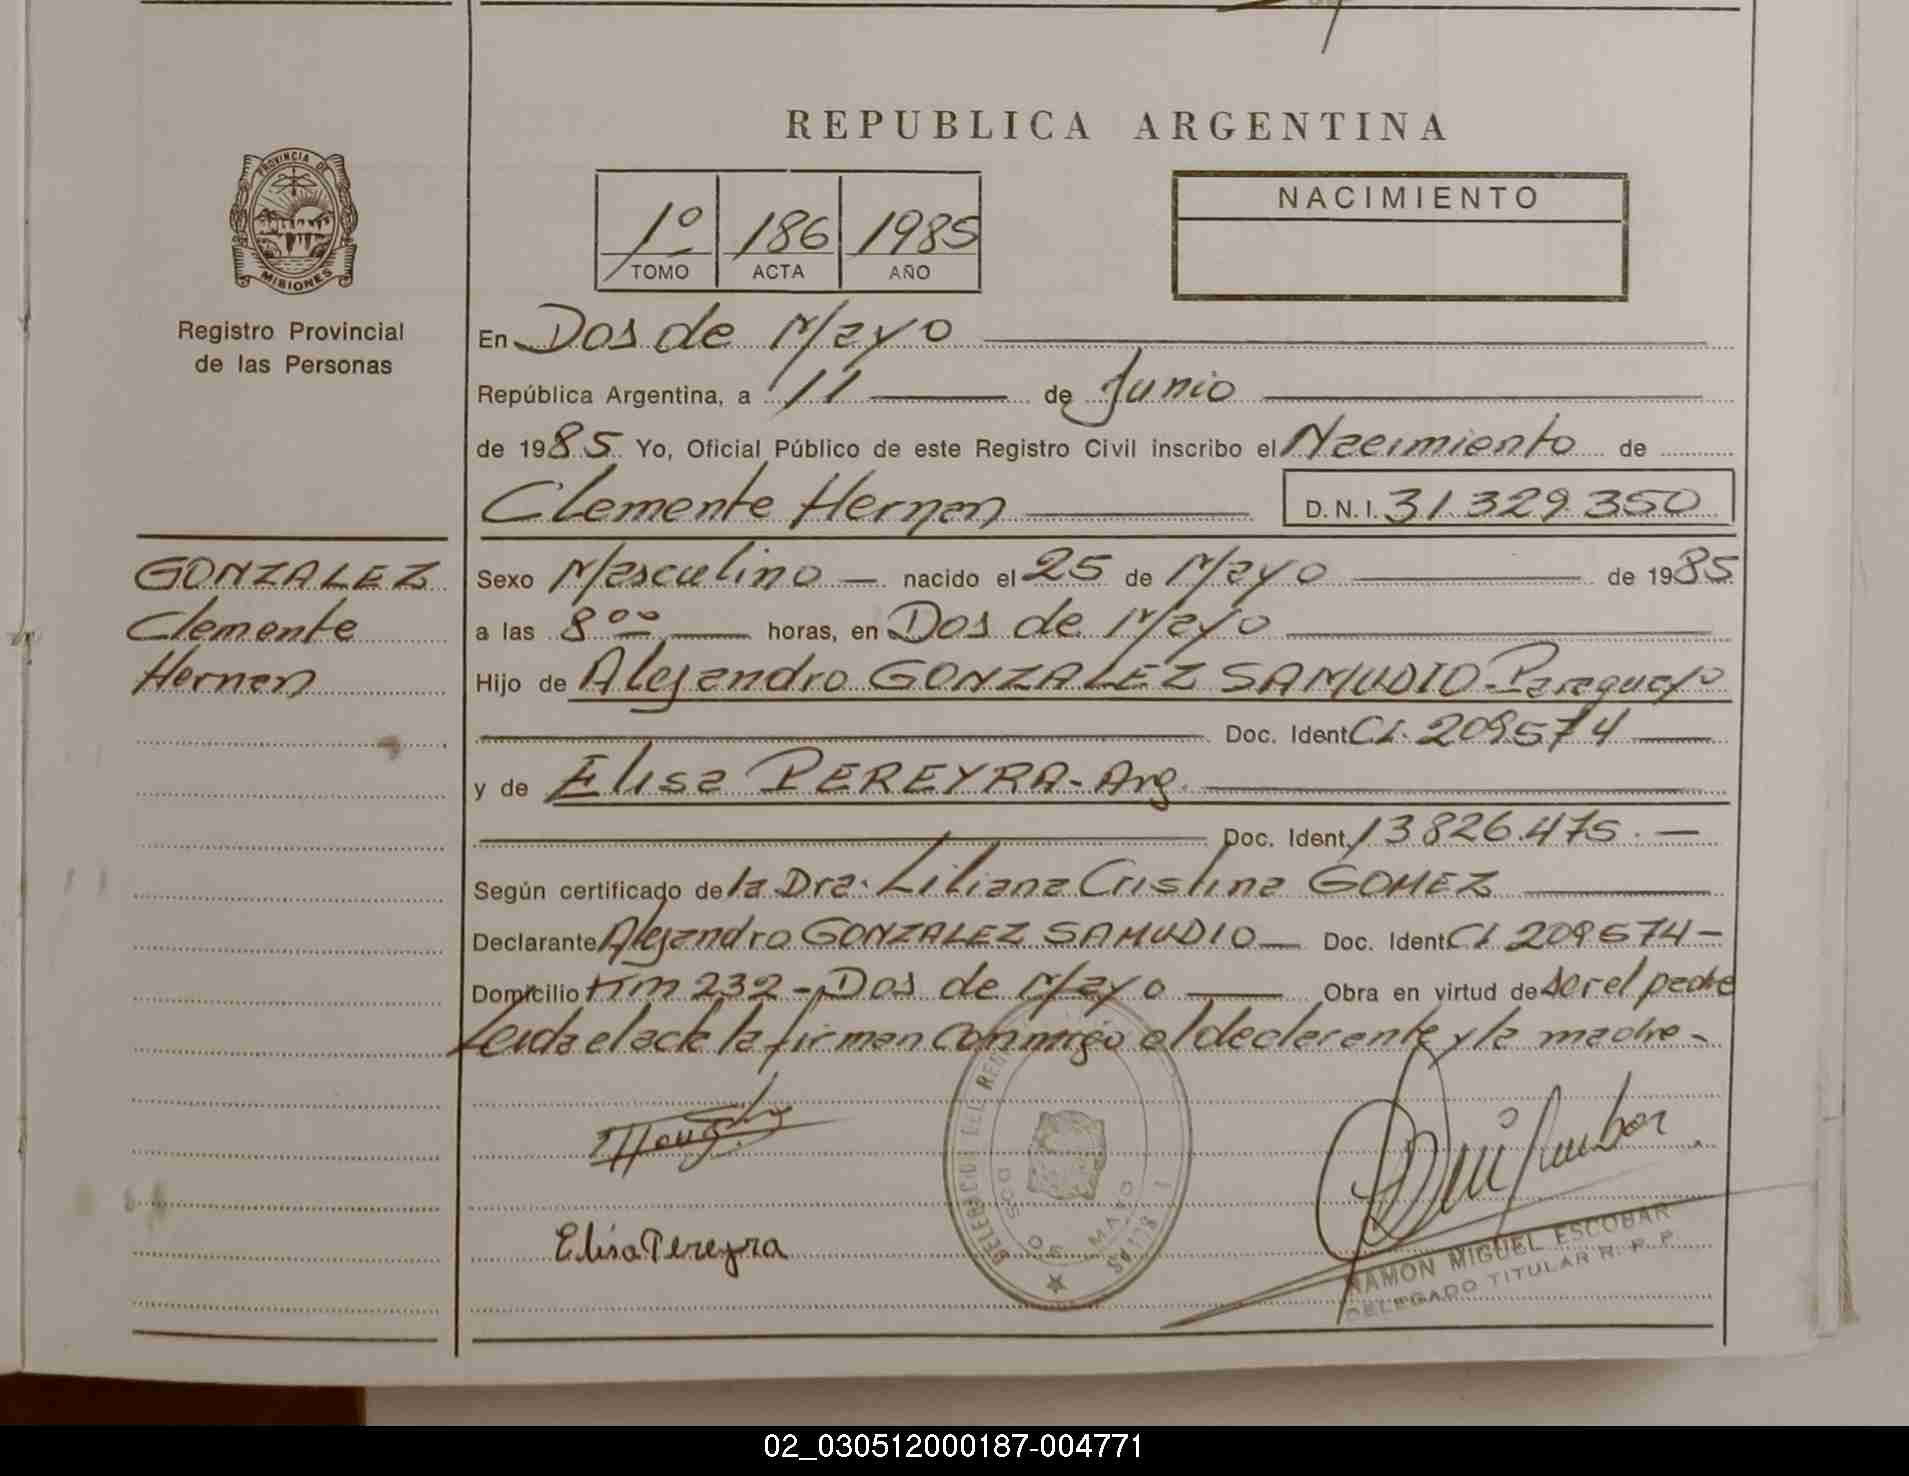 REPUBLICA ARGENTINA
PROVINCIA DE
MISIONES
Registro Provincial
de las Personas
1º 186 1985
TOMO ACTA AÑO
NACIMIENTO
En Dos de Mayo
República Argentina, a 11 de Junio
de 1985 Yo, Oficial Público de este Registro Civil inscribo el Nacimiento de
Clemente Hernan D.N.I. 31.329.350
GONZALEZ
Clemente
Hernan
Sexo Masculino nacido el 25 de Mayo de 1985
a las 8 ºº horas, en Dos de Mayo
Hijo de Alejandro GONZALEZ SAMUDIO - Paraguayo
Doc. Ident CI. 209574
y de Elisa PEREYRA - Arg.
Doc. Ident. 13.826.475. -
Según certificado de la Dra. Liliana Cristina GOMEZ
Declarante Alejandro GONZALEZ SAMUDIO Doc. Ident CI 209574 -
Domicilio Km 232 - Dos de Mayo Obra en virtud de ser el padre
Leida el acta la firman conmigo el declarante y la madre -
DOS DE MAYO
Elisa Pereyra
RAMON MIGUEL ESCOBAR
DELEGADO TITULAR R. P. P.
02_030512000187-004771